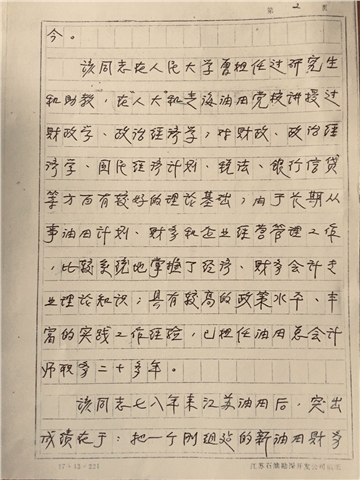 第 2 页
今。
该同志在人民大学曾担任过研究生
和助教，在"人大"和青海油田党校讲授过
财政学、政治经济学；对财政、政治经
济学、国民经济计划、税法、银行信贷
等方面有较好的理论基础；由于长期从
事油田计划、财务和企业经营管理工作
，比较系统地掌握了经济、财务会计专
业理论知识；具有较高的政策水平、丰
富的实践工作经验，已担任油田总会计
师职务二十多年。
该同志七八年来江苏油田后，突出
成绩在于：把一个刚组建的新油田财务
江苏石油勘探开发公司